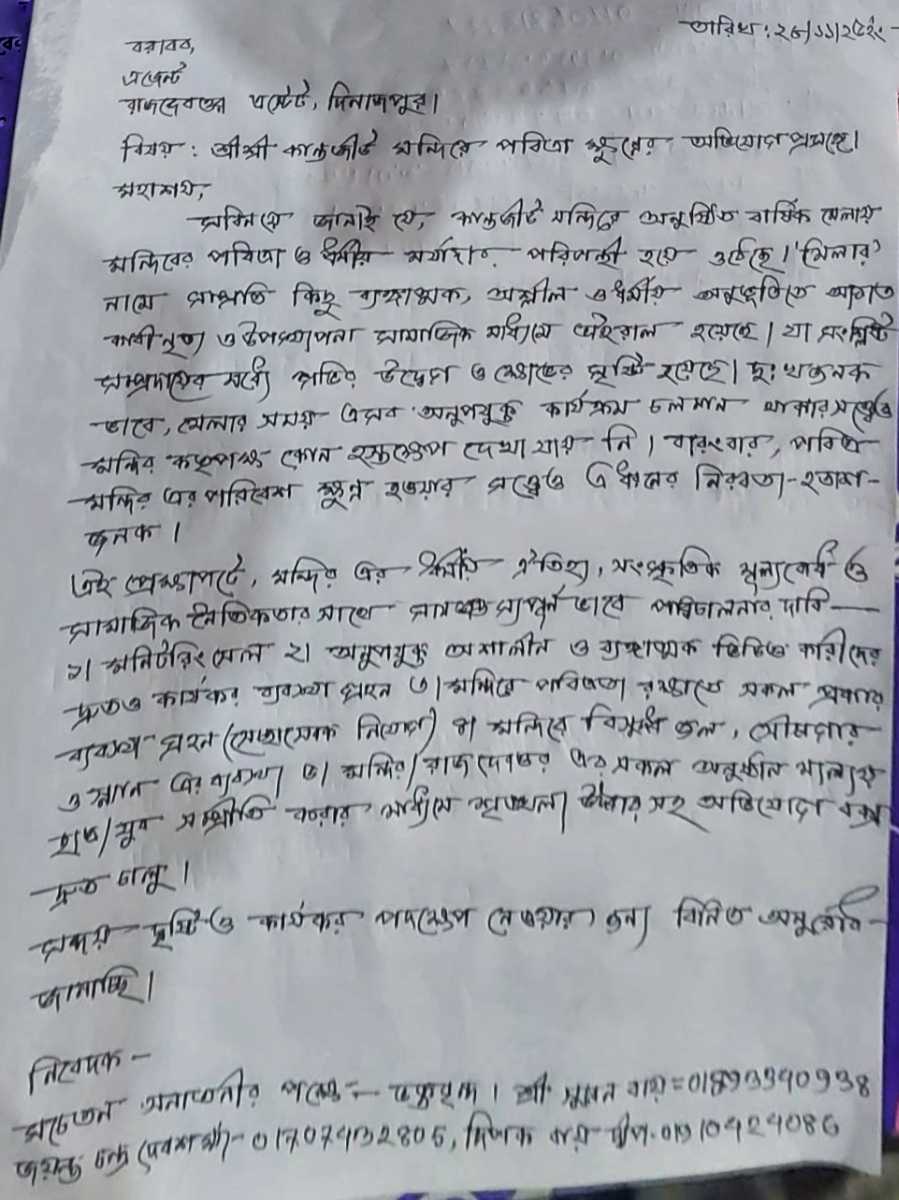 তারিখ: ২৫/১১/২৫ইং
বরাবর,
এজেন্ট
রাজদেবত্তোর এস্টেট, দিনাজপুর।
বিষয় : শ্রীশ্রী কান্তজীউ মন্দিরে পবিত্রতা ক্ষুন্নের অভিযোগ প্রসঙ্গে।
মহাশয়,
সবিনয়ে জানাই যে, কান্তজীউ মন্দিরে অনুষ্ঠিত বার্ষিক মেলায়
মন্দিরের পবিত্রতা ও ধর্মীয় মর্যাদার পরিপন্থী হয়ে ওঠেছে। 'মেলার'
নামে সম্প্রতি কিছু ব্যঙ্গাত্মক, অশ্লীল ও ধর্মীয় অনুভূতিতে আঘাত
কারী নৃত্য ও উপস্থাপনা সামাজিক মাধ্যমে ভাইরাল হয়েছে। যা সংশ্লিষ্ট
সম্প্রদায়ের মধ্যে গভীর উদ্বেগ ও ক্ষোভের সৃষ্টি হয়েছে। দু:খজনক
ভাবে, মেলার সময় এসব অনুপযুক্ত কার্যক্রম চলমান থাকার সত্ত্বেও
মন্দির কতৃপক্ষ কোন হস্তক্ষেপ দেখা যায় নি। বারংবার, পবিত্র
মন্দির এর পরিবেশ ক্ষুন্ন হওয়ার সত্ত্বেও এ ধরনের নিরবতা-হতাশ-
জনক।
এই প্রেক্ষাপটে, মন্দির এর ধর্মীয় ঐতিহ্য, সংস্কৃতিক মূল্যবোধ ও
সামাজিক নৈতিকতার সাথে সামঞ্জস্যপূর্ণ ভাবে পরিচালনার দাবি—
১। মনিটরিং সেল ২। অনুপযুক্ত অশালীন ও ব্যঙ্গাত্মক ভিডিও কারীদের
দ্রুত ও কার্যকর ব্যবস্থা গ্রহন ৩। মন্দিরে পবিত্রতা রক্ষাতে সকল প্রকার
ব্যবস্থা গ্রহন (সেচ্ছাসেবক নিয়োগ) ৪। মন্দিরে বিশুদ্ধ জল, শৌচাগার
ও স্নান এর ব্যবস্থা ৫। মন্দির/রাজদেবত্তর এর সকল অনুষ্ঠান
ছাত্র/যুব সম্প্রীতি করার মাধ্যমে শৃঙ্খলা সহ অভিযোগ বক্স
দ্রুত চালু।
সদয় দৃষ্টি ও কার্যকর পদক্ষেপ নেওয়ার জন্য বিনিত অনুরোধ
জানাচ্ছি।
নিবেদক -
সচেতন সনাতনীর পক্ষে — শ্রী সুমন রায় = 01893990938
জয়ন্ত চন্দ্র (দেবশর্মা)- 01707432805, দিপক রায় 01910424086